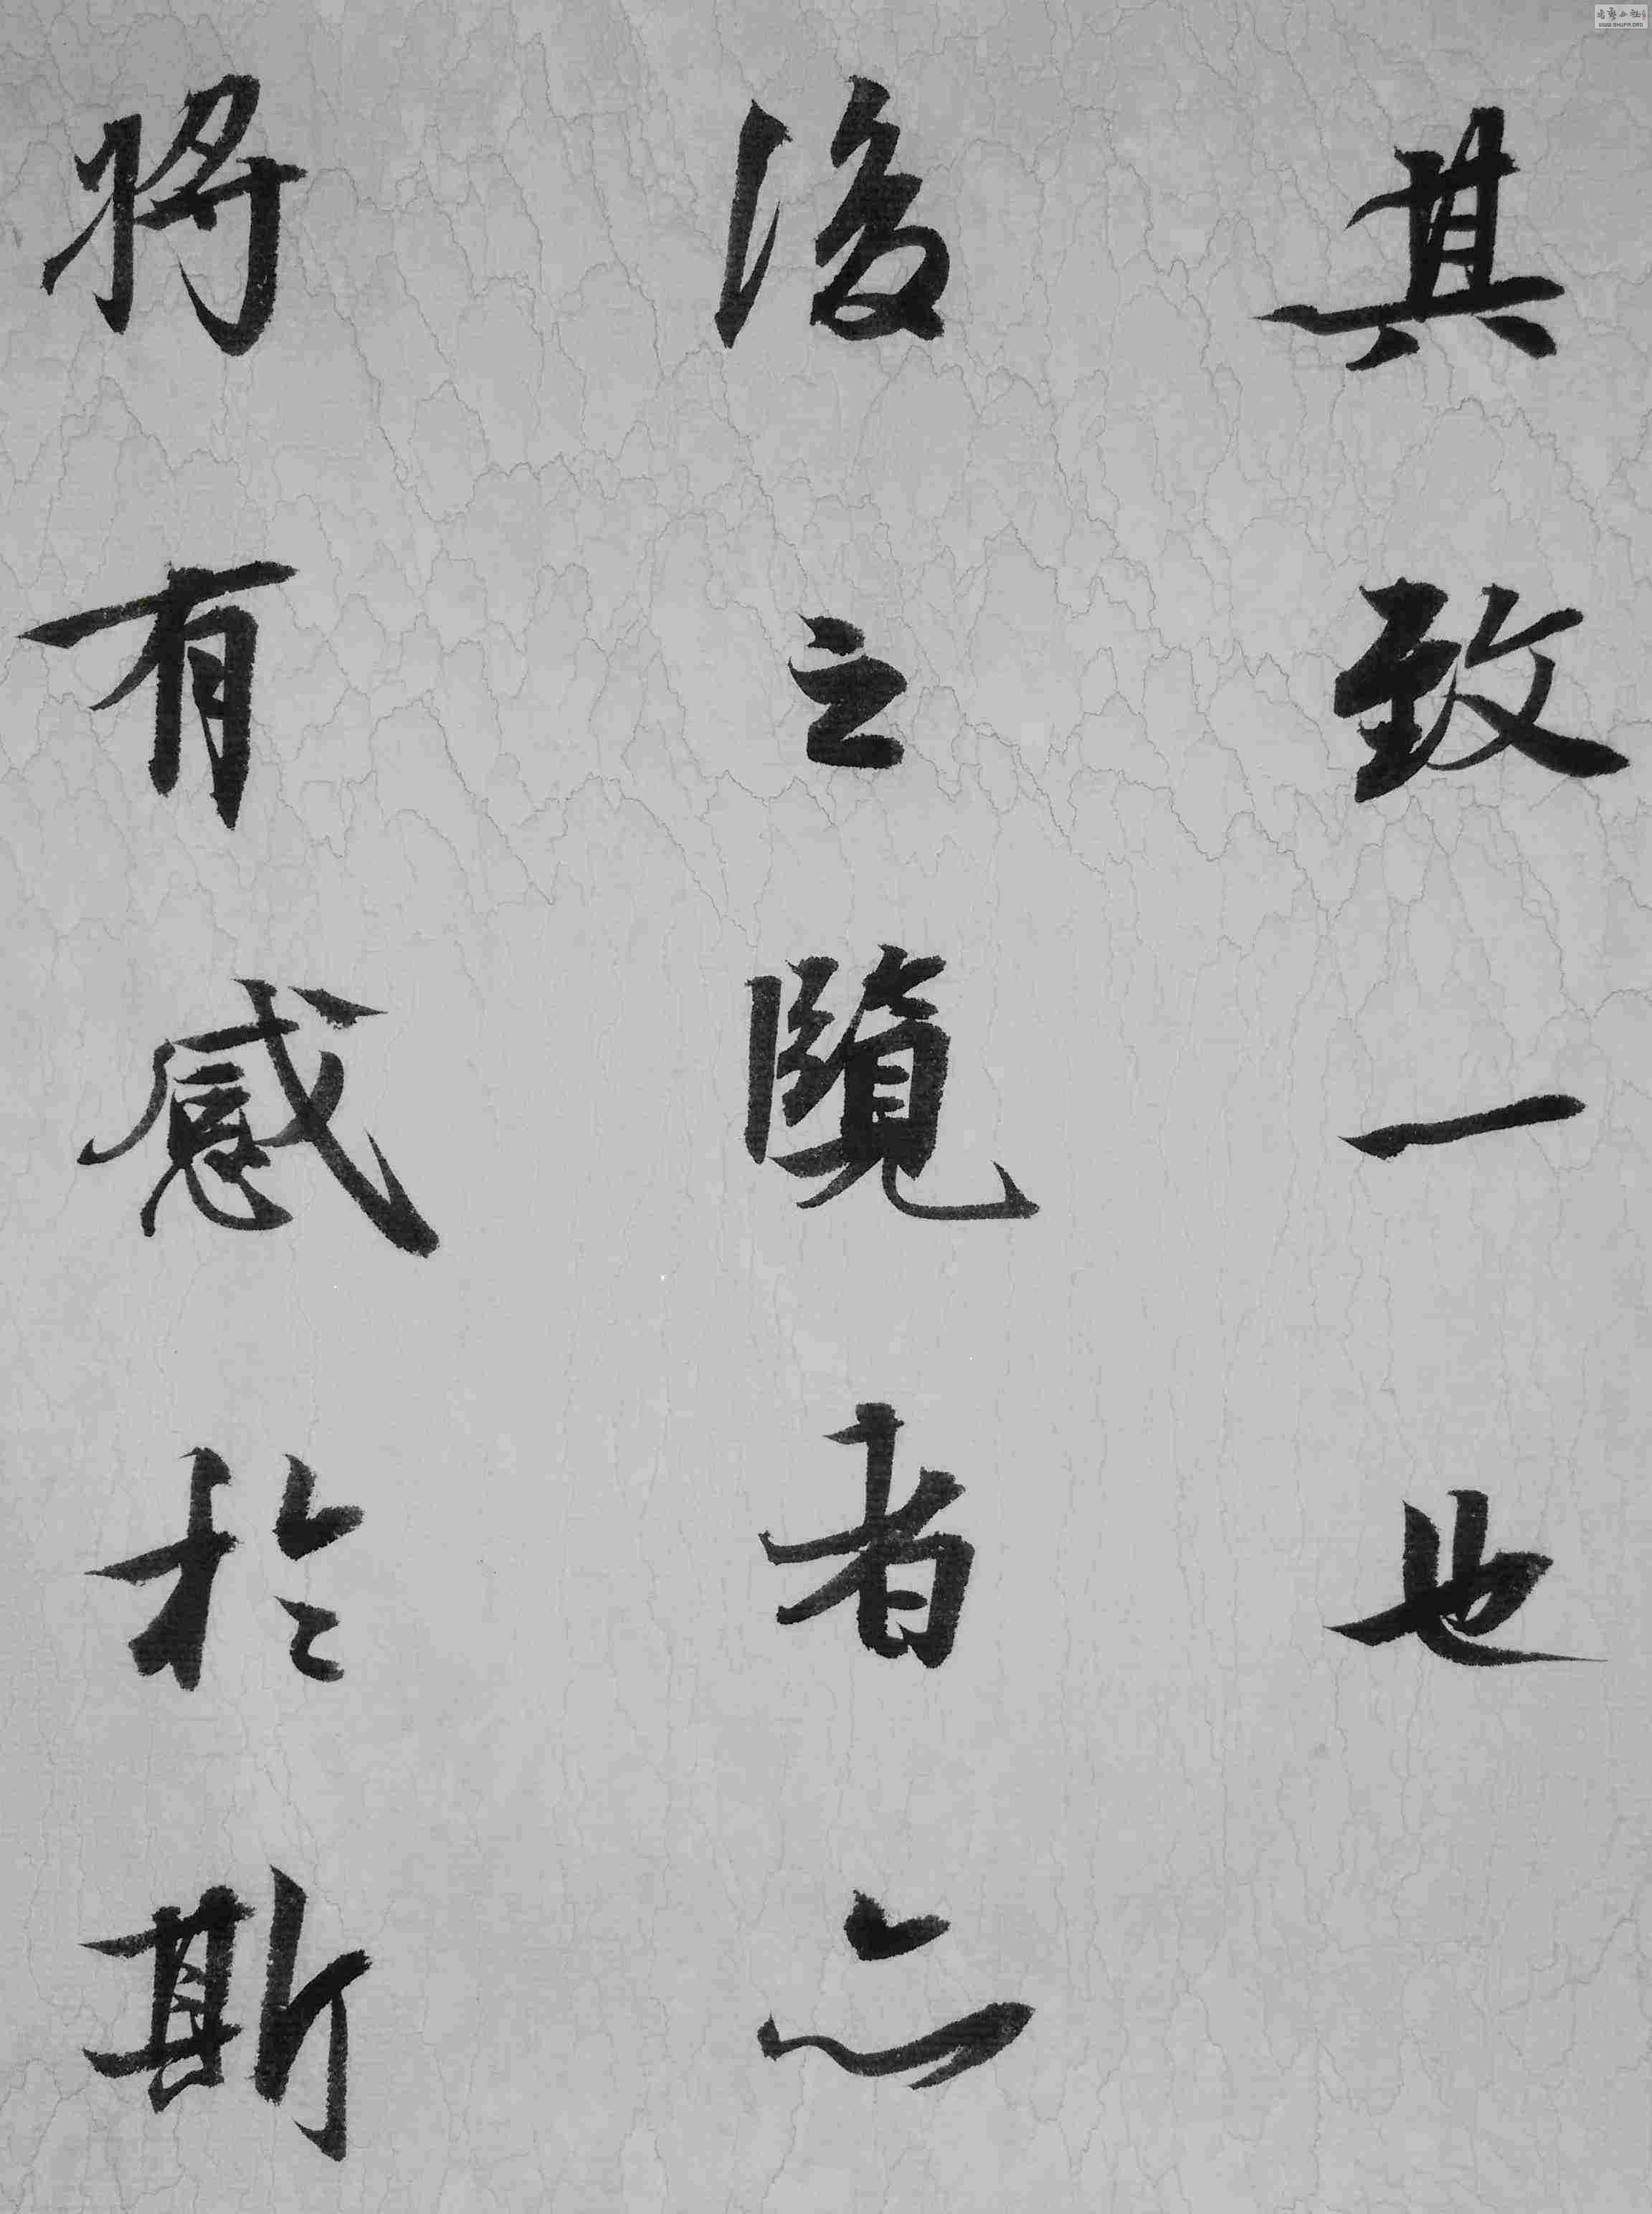 其致一也
後之覽者亦
將有感於斯
WWW.SHUFA.ORG